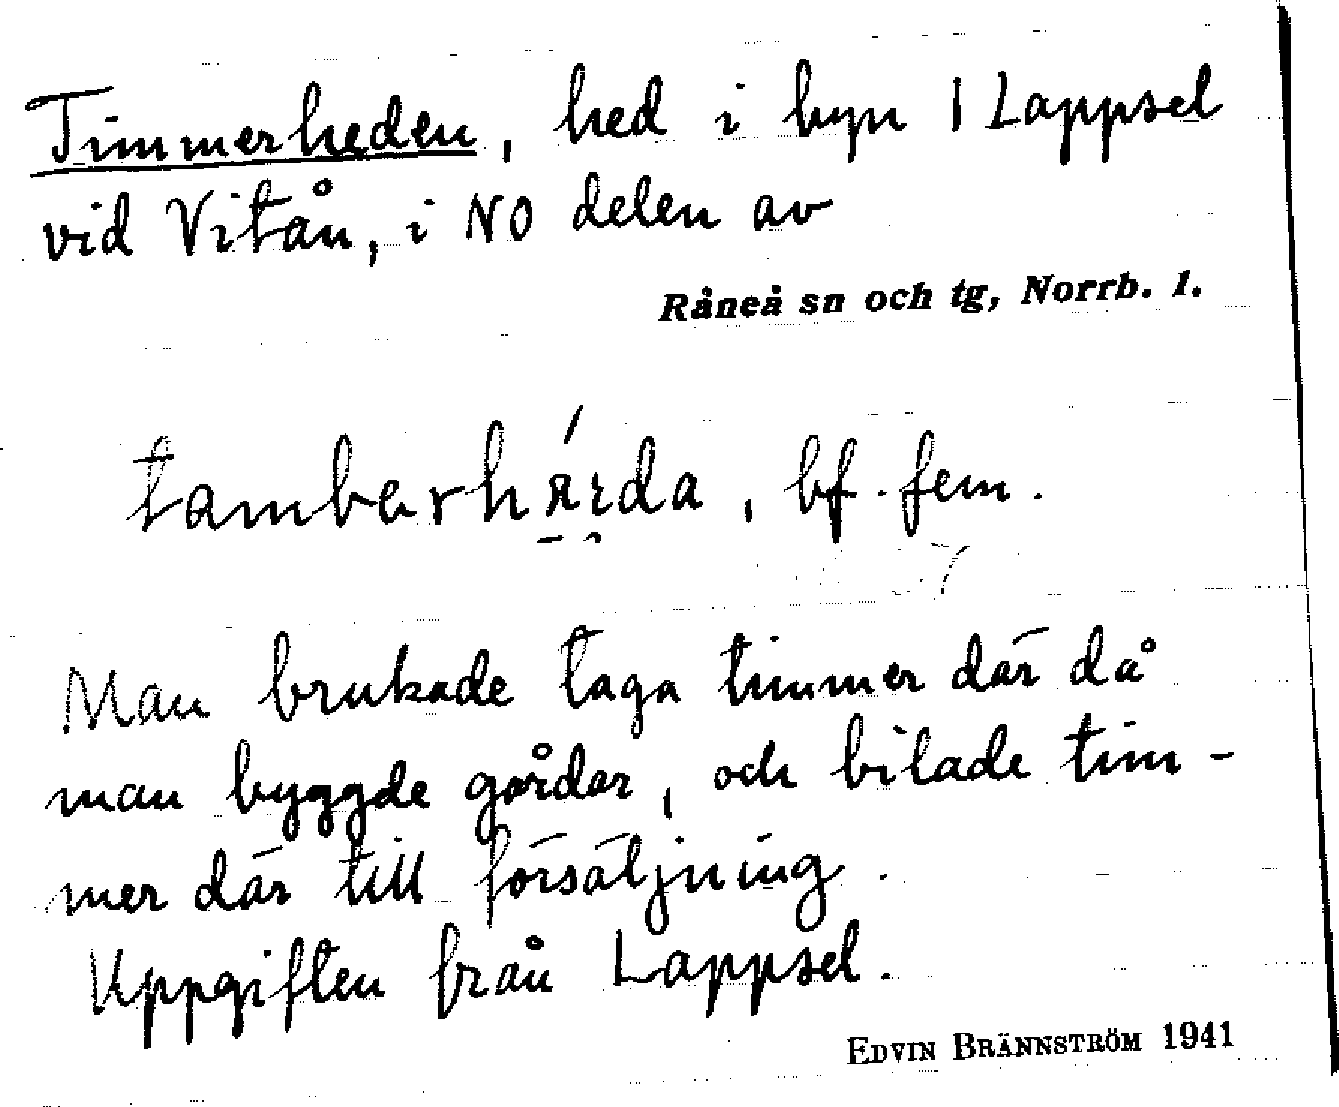 Timmerheden, hed i byn 1 Lappsel
vid Vitån, i NO delen av
Råneå sn och tg, Norrb. l.
bf. fem.
Man brukade taga timmer där då
man byggde gårdar, och bilade tim-
mer där till försäljning.
Uppgiften från Lappsel.
EDVIN BRÄNNSTRÖM 1941